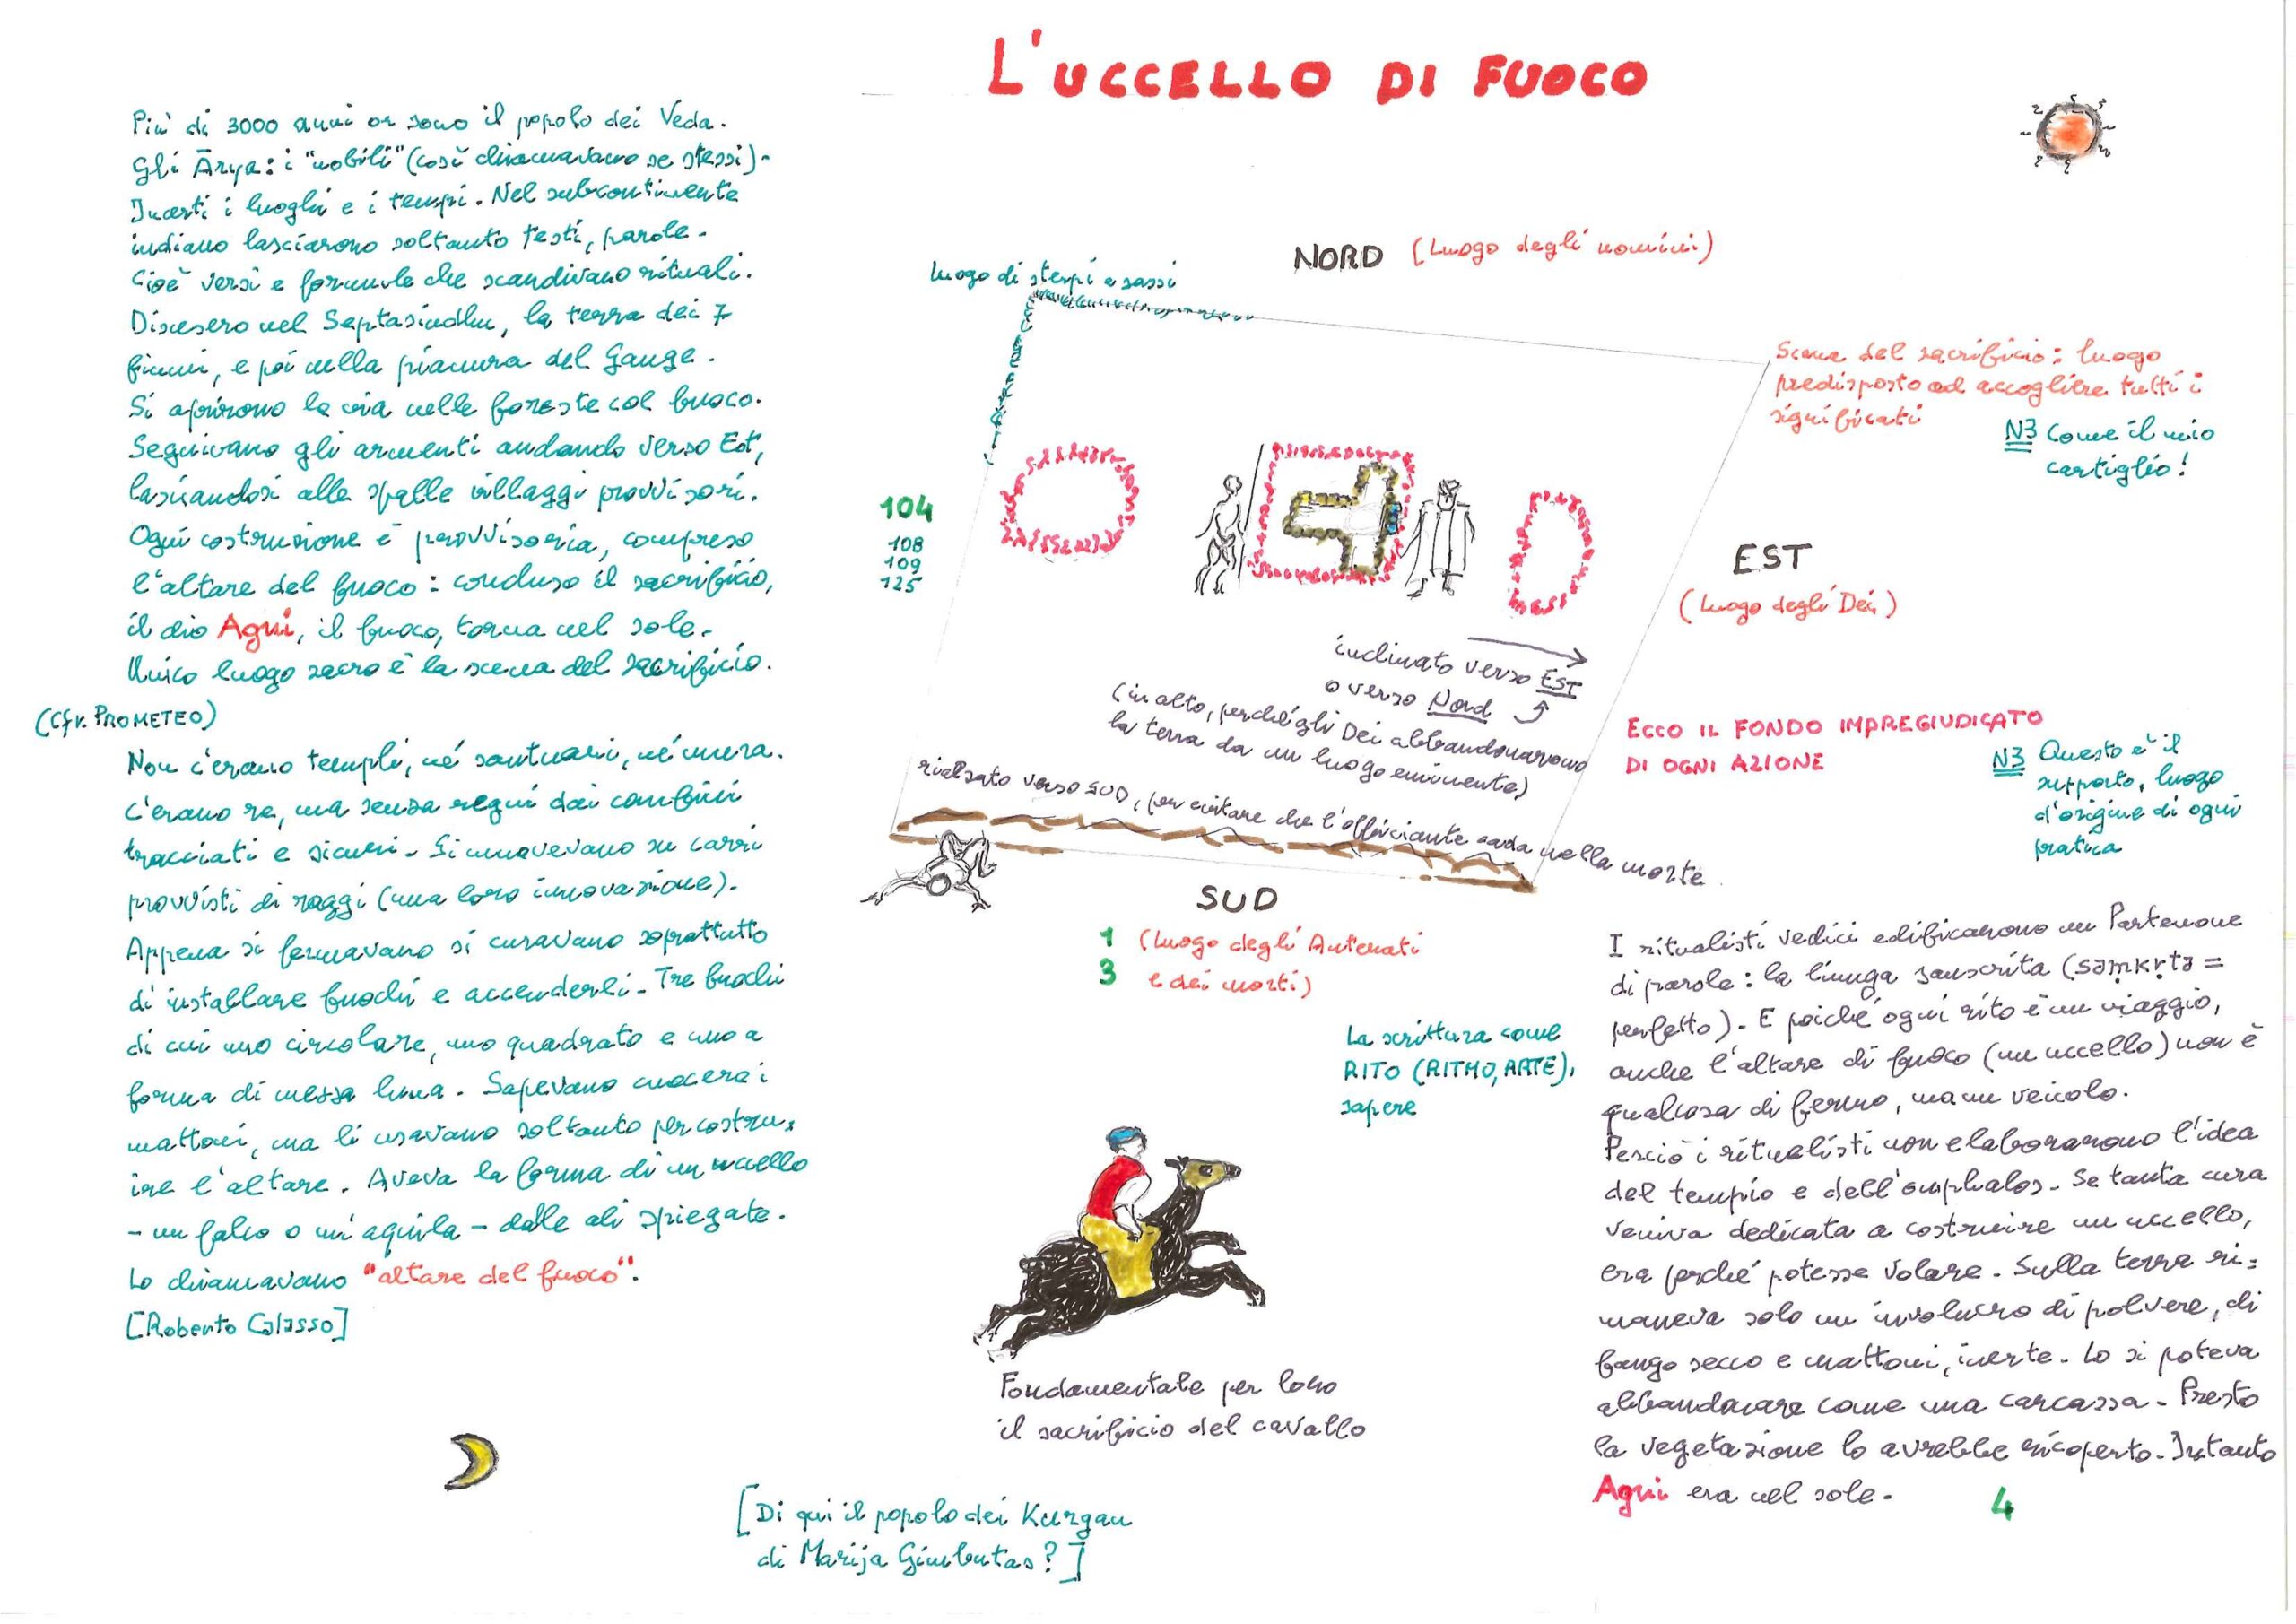 L'UCCELLO DI FUOCO
Più di 3000 anni or sono il popolo dei Veda.
Gli Ārya: i "nobili" (così chiamavano se stessi).
Incerti i luoghi e i tempi. Nel subcontinente
indiano lasciarono soltanto testi, parole.
Cioè versi e formule che scandivano rituali.
Discesero nel Saptasindhu, la terra dei 7
fiumi, e poi nella pianura del Gange.
Si aprirono la via nelle foreste col fuoco.
Seguivano gli armenti andando verso Est,
lasciandosi alle spalle villaggi provvisori.
Ogni costruzione è provvisoria, compreso
l'altare del fuoco: concluso il sacrificio,
il dio Agni, il fuoco, torna nel sole.
Unico luogo sacro è la scena del sacrificio.
(Cfr. PROMETEO)
Non c'erano templi, né santuari, né mura.
C'erano re, ma senza regni dai confini
tracciati e sicuri. Si muovevano su carri
provvisti di raggi (una loro innovazione).
Appena si fermavano si curavano soprattutto
di installare fuochi e accenderli. Tre fuochi
di cui uno circolare, uno quadrato e uno a
forma di mezza luna. Sapevano cuocere i
mattoni, ma li usavano soltanto per costru=
ire l'altare. Aveva la forma di un uccello
- un falco o un'aquila - dalle ali spiegate.
Lo chiamavano "altare del fuoco".
[Roberto Calasso]
NORD (Luogo degli uomini)
luogo di sterpi e sassi
Scena del sacrificio: luogo
predisposto ad accogliere tutti i
significati
N3 Come il mio
cartiglio!
104
108
109
125
EST
(Luogo degli Dei)
inclinato verso EST
o verso Nord
(in alto, perché gli Dei abbandonarono
la terra da un luogo eminente)
rialzato verso SUD, per evitare che l'officiante cada nella morte
ECCO IL FONDO IMPREGIUDICATO
DI OGNI AZIONE
N3 Questo è il
supporto, luogo
d'origine di ogni
pratica
SUD
1 (Luogo degli Antenati
3 e dei morti)
La scrittura come
RITO (RITMO, ARTE),
sapere
Fondamentale per loro
il sacrificio del cavallo
[Di qui il popolo dei Kurgan
di Marija Gimbutas?]
I ritualisti vedici edificarono un Partenone
di parole: la lingua sanscrita (saṃkṛta =
perfetto). E poiché ogni rito è un viaggio,
anche l'altare di fuoco (un uccello) non è
qualcosa di fermo, ma un veicolo.
Perciò i ritualisti non elaborarono l'idea
del tempio e dell'omphalos. Se tanta cura
veniva dedicata a costruire un uccello,
era perché potesse volare. Sulla terra ri=
maneva solo un involucro di polvere, di
fango secco e mattoni, inerte. Lo si poteva
abbandonare come una carcassa. Presto
la vegetazione lo avrebbe ricoperto. Intanto
Agni era nel sole.
4